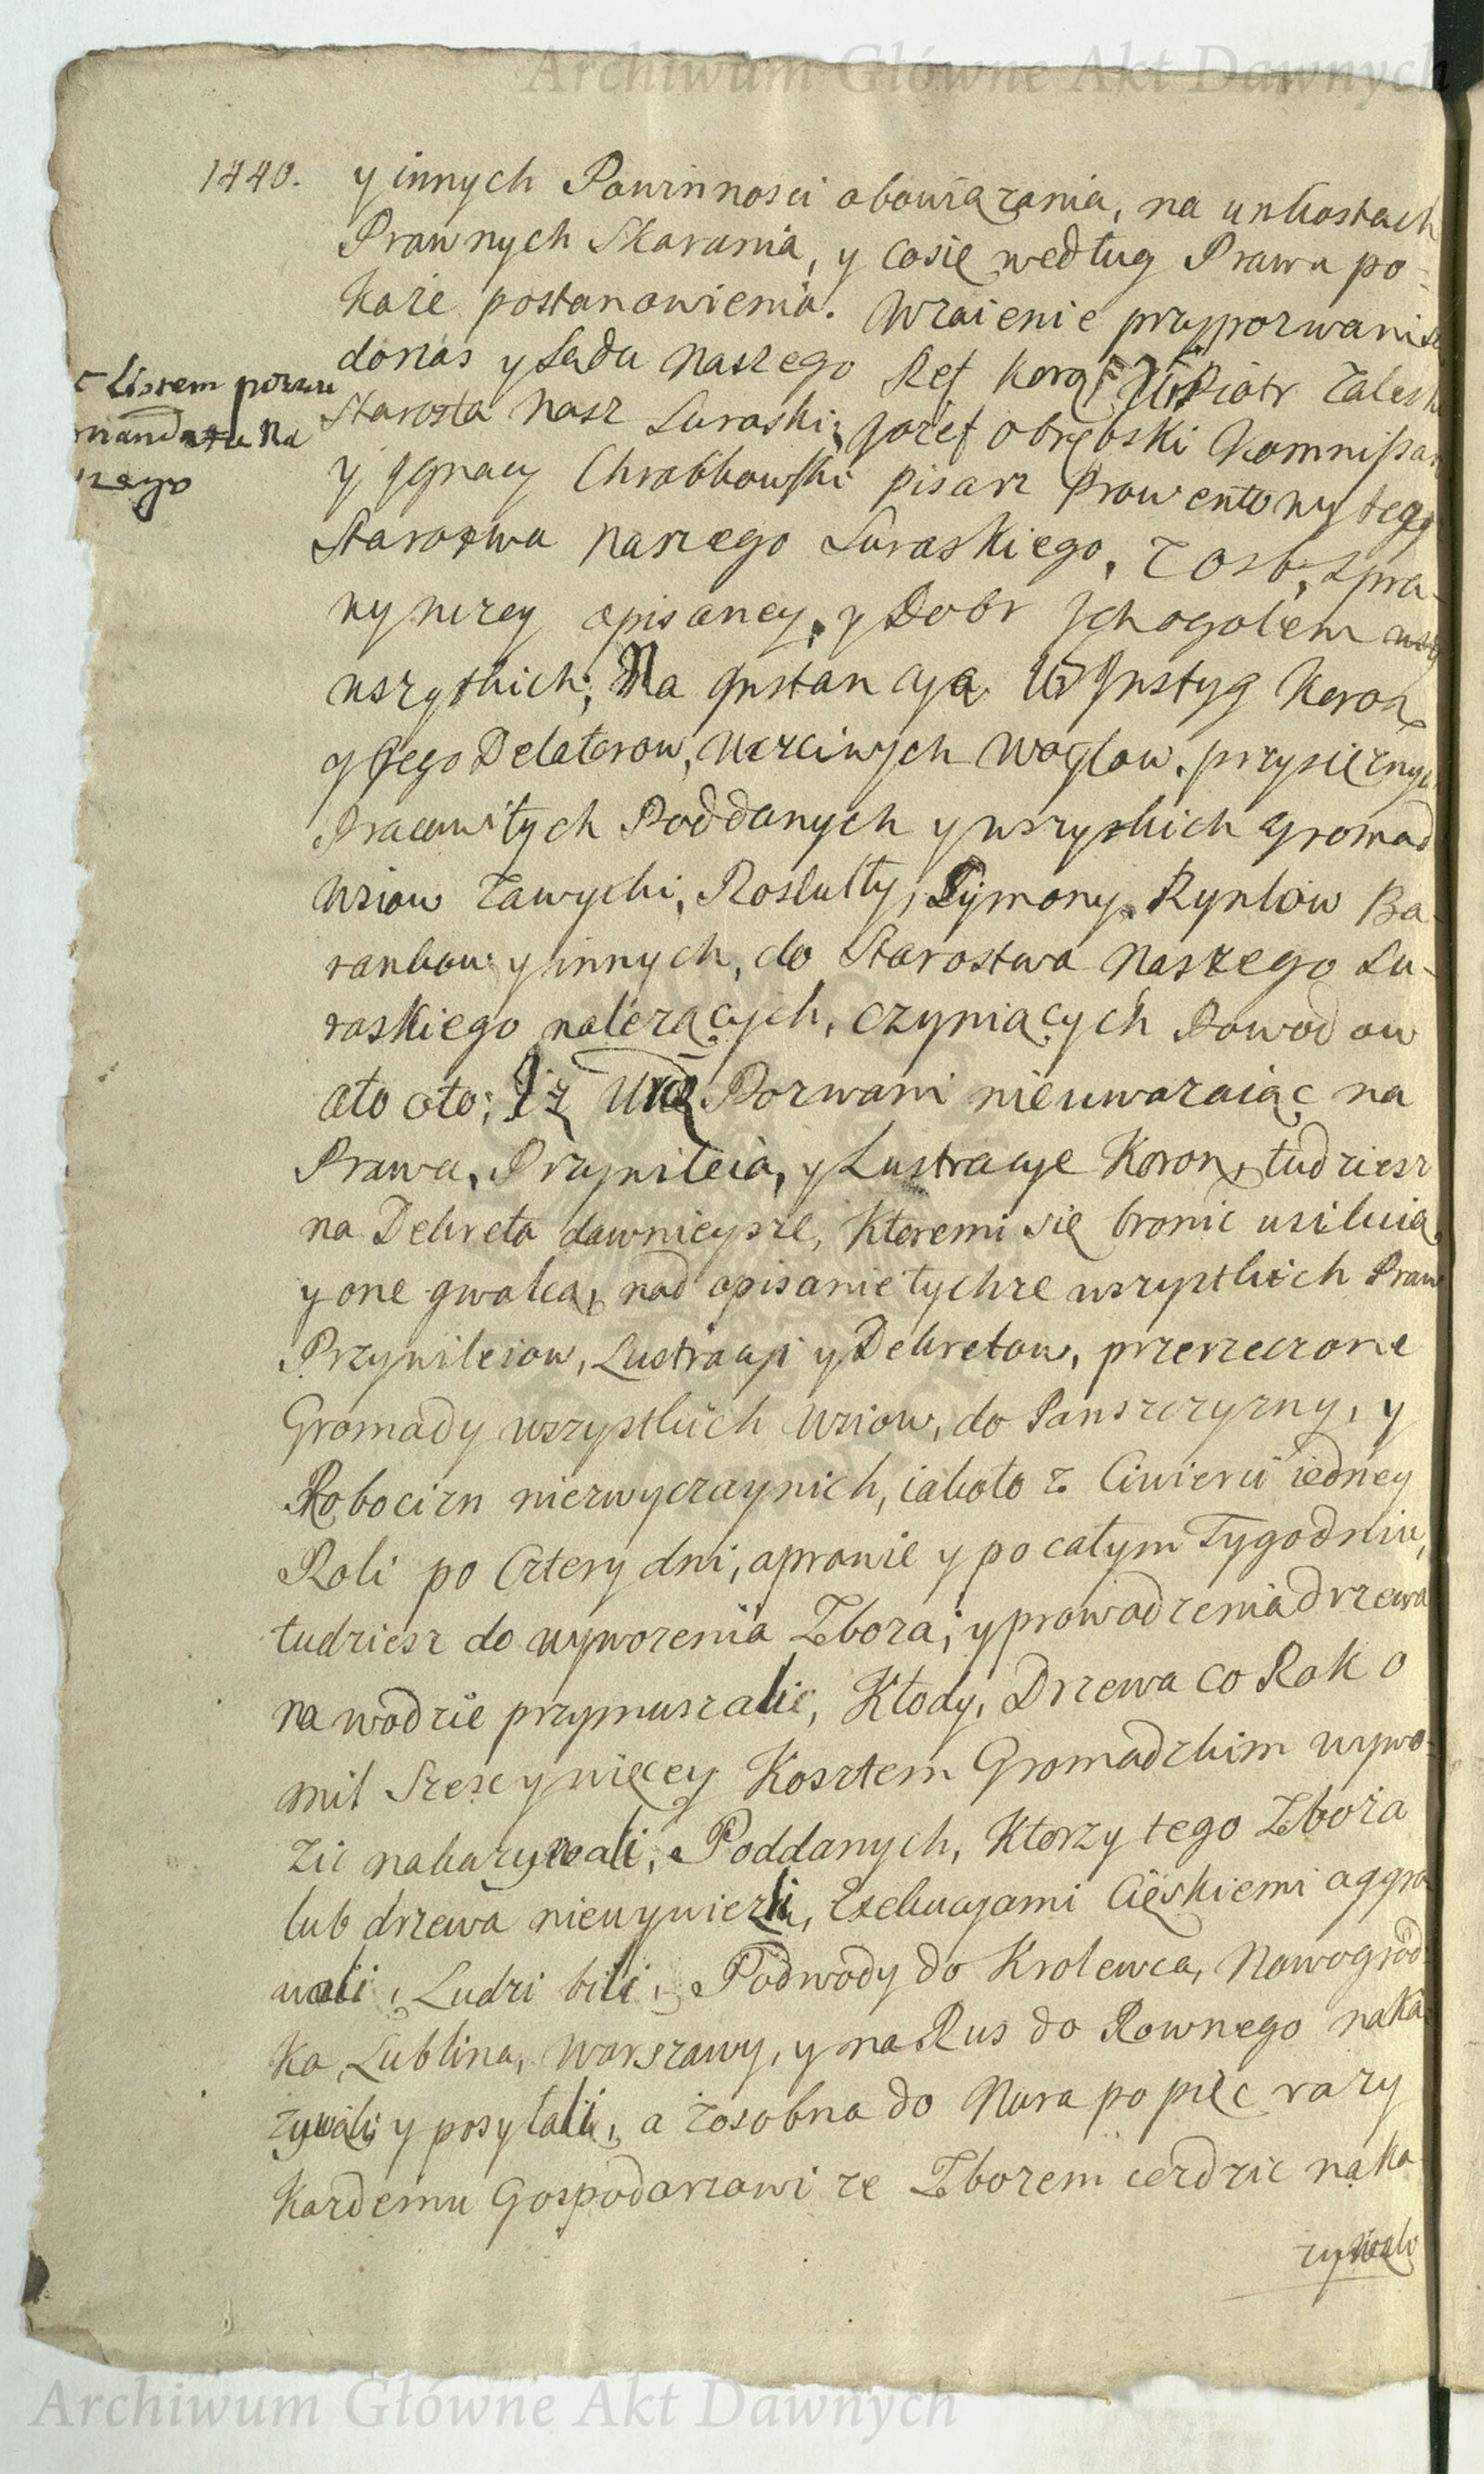 Archiwum Główne Akt Dawnych
1740.
y innych Powinnosci obowiązania, na unkostach
Prawnych Skarania, y cosię według Prawa po-
każe postanowienia. Wzaienie przyporwania
donas y Sądu Naszego Ref Koron Ur Piotr Zaleski
Listem pozzu
mandatu Na
nego
Starosta Nasz Suraski, Jozef Obrębski Kommissarz
y Ignacy Chrobkowski pisarz Prowentowy tego
Starostwa Naszego Suraskiego, z Osb, Spra-
wy nizey opisaney, y Dobr Ich ogolem
wszystkich; Na Instancyą Ur Instyg Koron
y Jego Delatorow, Uczciwych Woytow, przysięznych
Pracowitych Poddanych y wszystkich Gromad
Wsiow Zawyki, Roslutty, Lymony, Rynkow Ba-
rankow y innych, do Starostwa Naszego Su-
raskiego nalezących, czyniących Powodow
oto oto; Iz Wy Pozwani nieuwazaiąc na
Prawa, Przywileia, y Lustracye Koron, tudziesz
na Dekreta dawnieysze, Ktoremi się bronic usiluią
y one gwalcą, nad opisanie tychze wszystkich Praw
Przywileiow, Lustracyi y Dekretow, przerzeczone
Gromady wszystkich Wsiow, do Panszczyzny, y
Robocizn niezwyczaynich, iakoto z Cwierci iedney
Roli po Cztery dni, aprawie y po całym Tygodniu,
tudziesz do wywozenia Zboza, y prowadzenia drzewa
na wodzie przymuszali, Kłody, Drzewa co Rok o
mil Szesc y więcey Kosztem Gromadzkim wywo-
zic nakazywali, Poddanych, Ktorzy tego Zboza
lub drzewa niewywiezli, Exekucyami Cięskiemi aggra-
wali, Ludzi bili, Podwody do Krolewca, Nowogrod-
ka, Lublina, Warszawy, y na Rus do Rownego naka-
zywali y posyłali, a zosobna do Nura po pięc razy
Kazdemu Gospodarzowi ze Zbozem iezdzic naka-
zywali
Archiwum Główne Akt Dawnych